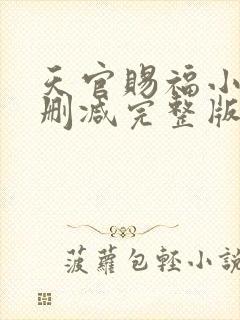 天官赐福小
删减完整版
菠蘿包輕小説